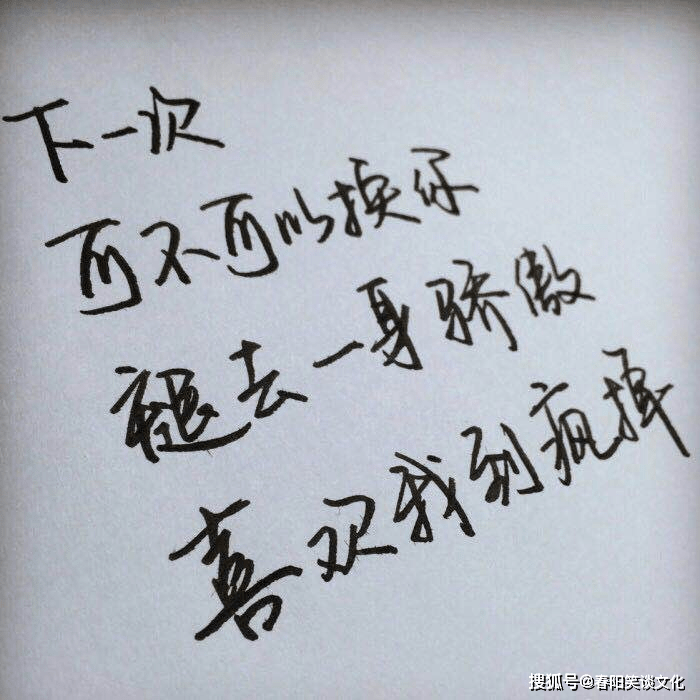 下一次
可不可以换你
褪去一身骄傲
喜欢我到疯掉
搜狐号@春阳笑谈文化